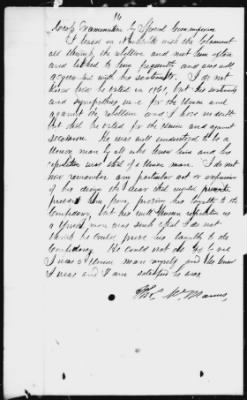 14
Cross Examination by Special Commissioner
I lived in with the Claimant
all through the rebellion and met him often
and talked to him frequently and was well
acquainted with his sentiments. I do not
know how he voted in 1861, but his
and sympathies were for the Union and
against the rebellion and I have no doubt
but that he voted for the Union and against
secession. He was well understood to be a
Union man by all who knew him and his
reputation was that of a Union man. I do not
now remember any particular act or expression
of his during the war that might
him from, proving his loyalty to the
Confederacy, but his well known reputation as
a Union man was such that I do not
think he could prove his loyalty to the
Confederacy. He could not do so to me
I was a Union man myself and he knew
I was and I am satisfied he was
Thos. McManus